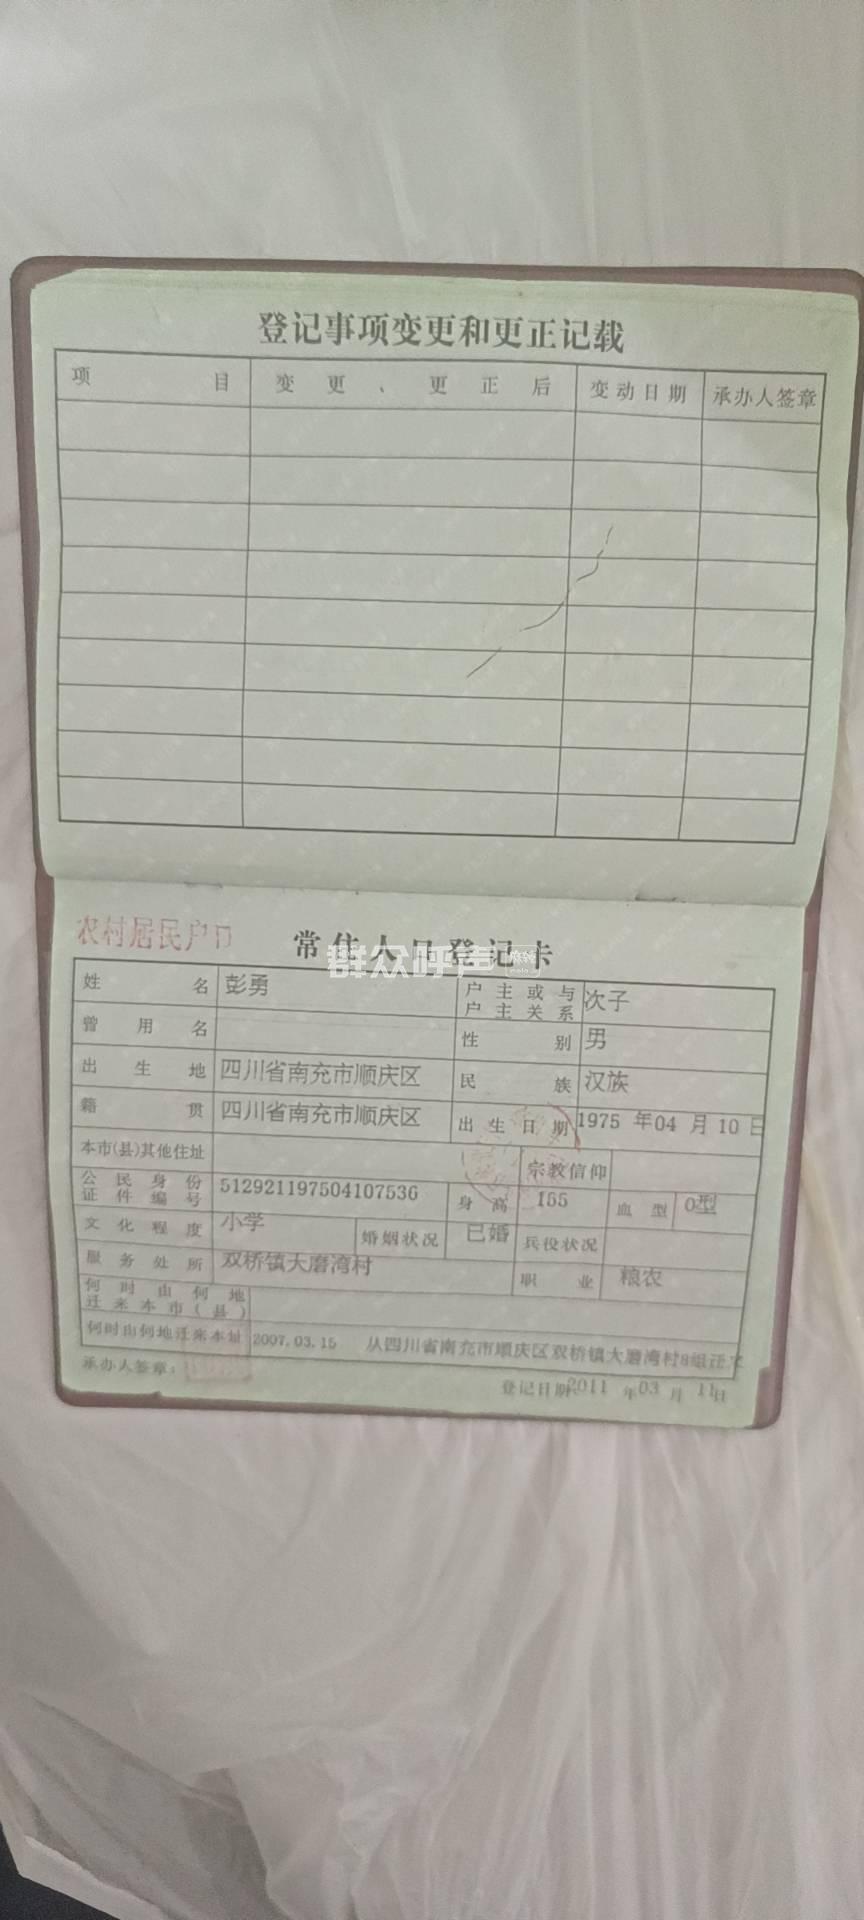 登记事项变更和更正记载
项 目 变 更 、 更 正 后 变动日期 承办人签章
农村居民户口
常住人口登记卡
群众呼声
姓 名 彭勇 户主或与户主关系 次子
曾 用 名 性 别 男
出 生 地 四川省南充市顺庆区 民 族 汉族
籍 贯 四川省南充市顺庆区 出 生 日 期 1975 年 04 月 10 日
本市(县)其他住址 宗教信仰
公民身份证件编号 512921197504107536 身 高 155 血 型 O型
文 化 程 度 小学 婚姻状况 已婚 兵役状况
服 务 处 所 双桥镇大磨湾村 职 业 粮农
何时由何地迁来本市(县)
何时由何地迁来本址 2007.03.15 从四川省南充市顺庆区双桥镇大磨湾村8组迁
承办人签章:
登记日期 2011 年 03 月 11 日